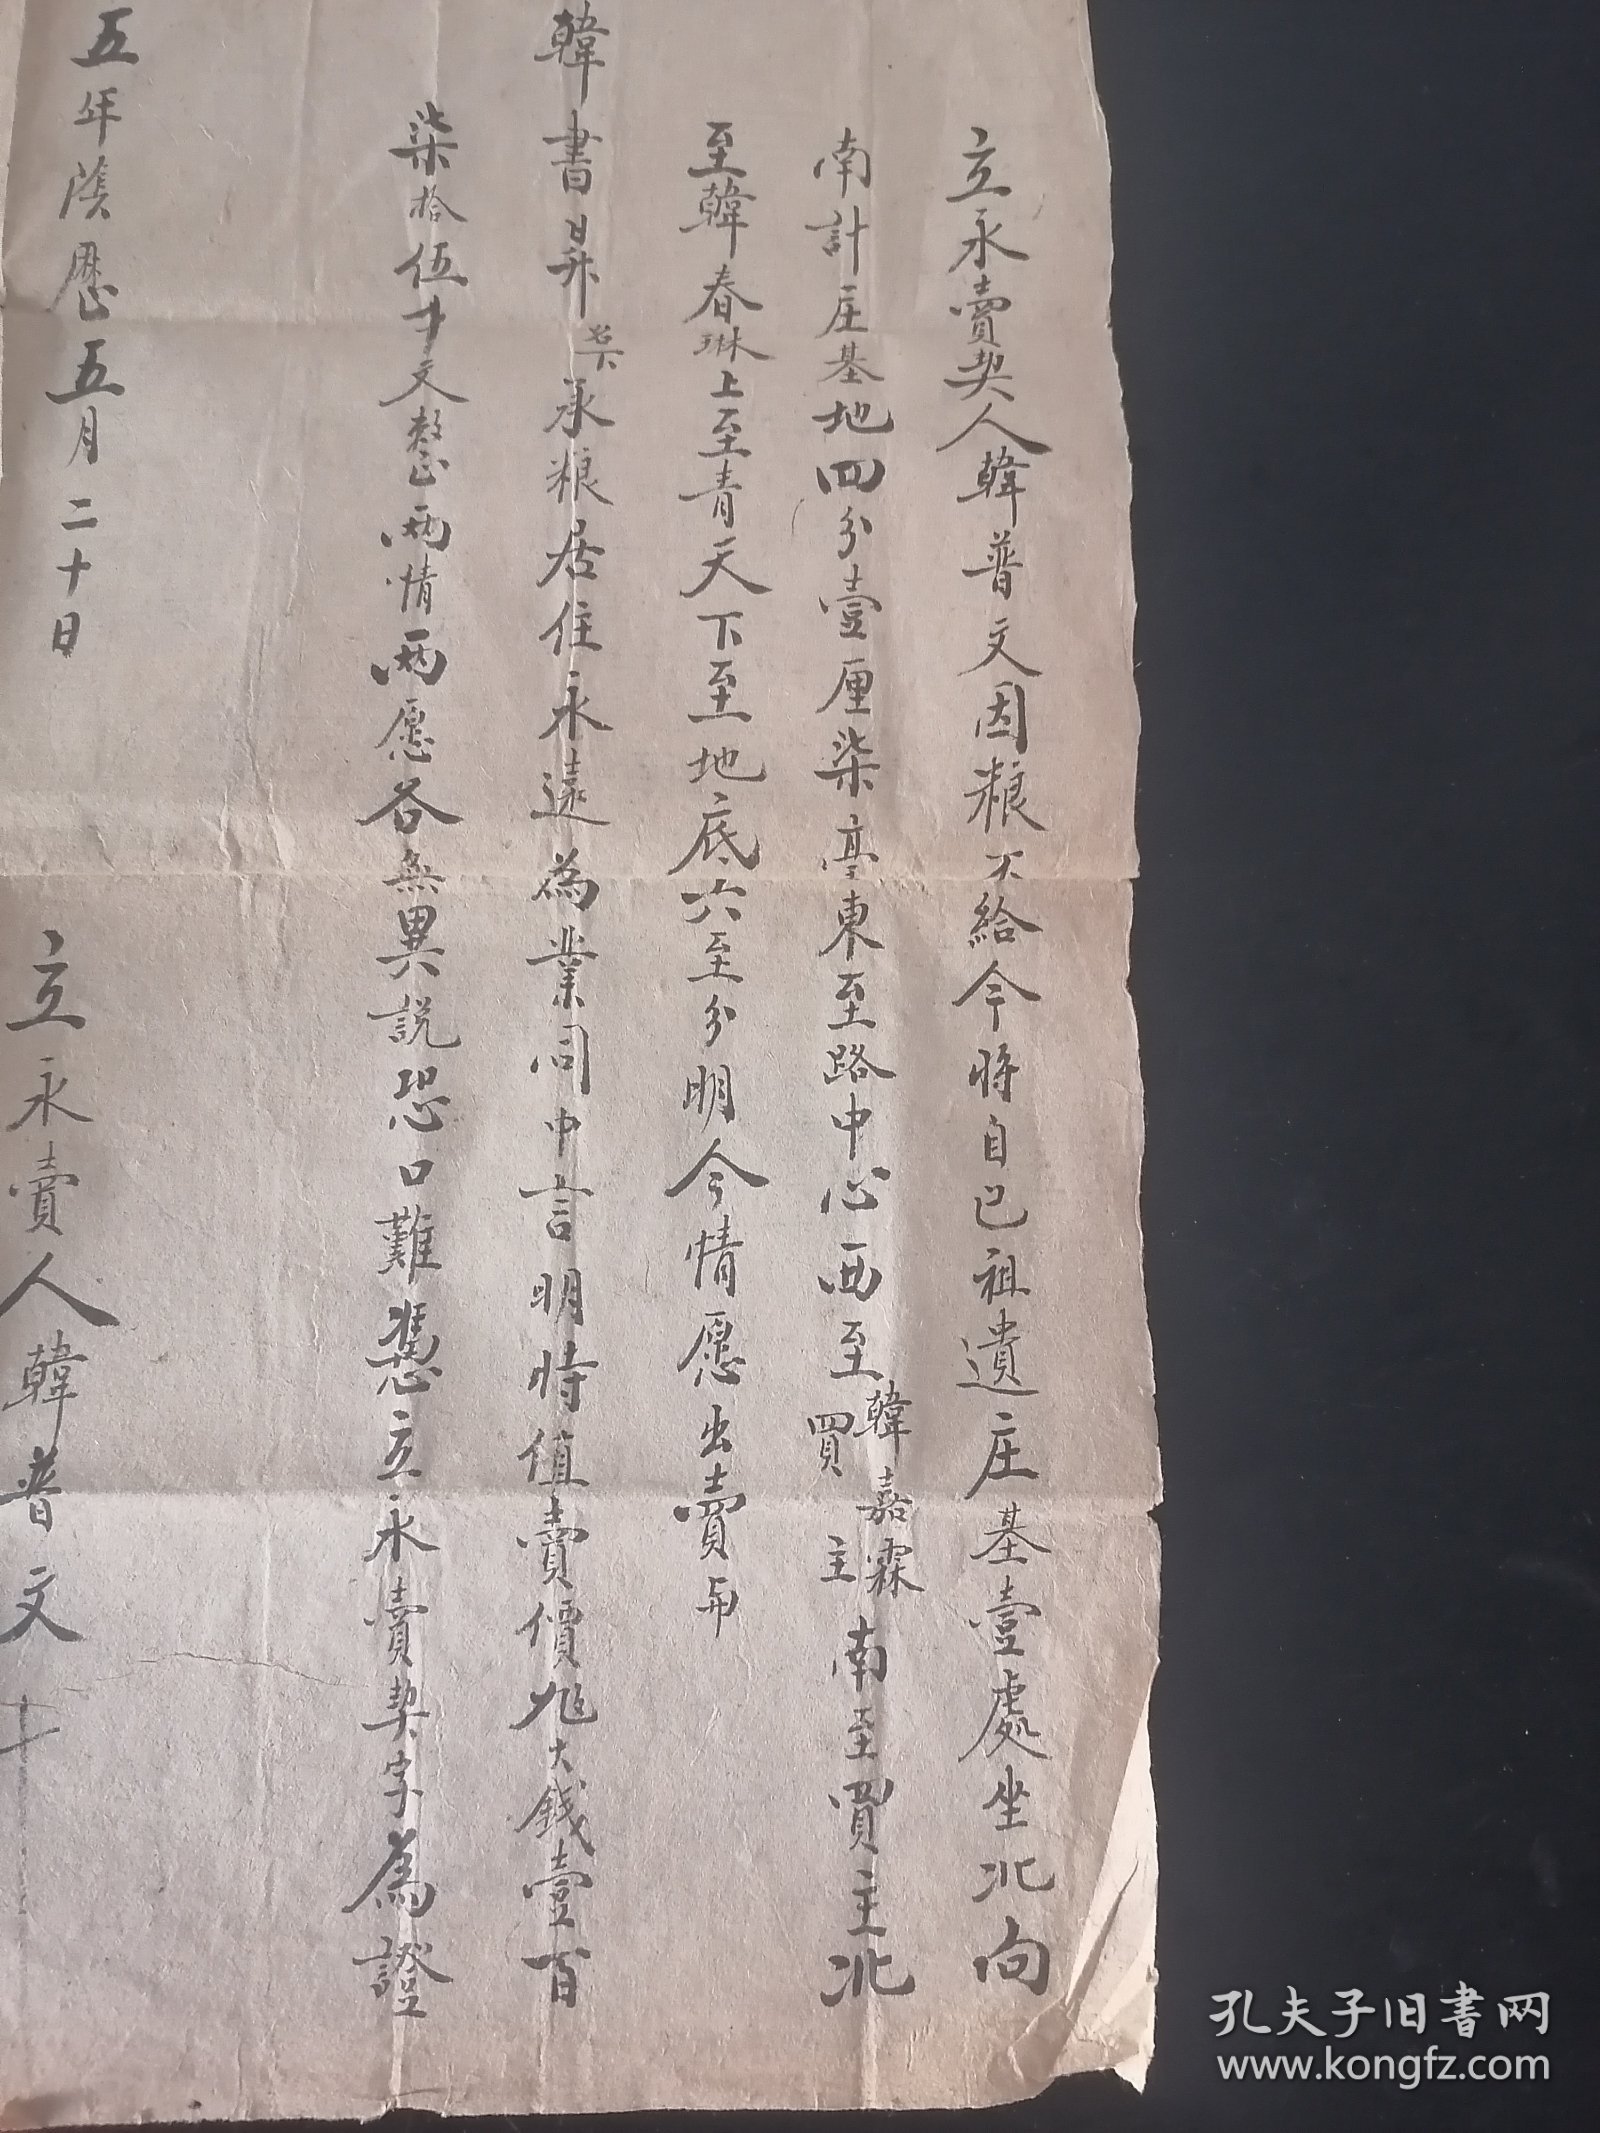 立永賣契人韓普文因粮不給今将自己祖遺庄基壹處坐北向
南計庄基地四分壹厘柒亳東至路中心西至韓嘉霖買主南至買主北
至韓春琳上至青天下至地底六至分明今情愿出賣与
韓書昇名下承粮居住永遠為業同中言明時值賣價大錢壹百
柒拾伍千文整兩情兩愿各無異説恐口難憑立永賣契字為證
五年陰歷五月二十日
立永賣人韓普文十
孔夫子旧书网
www.kongfz.com